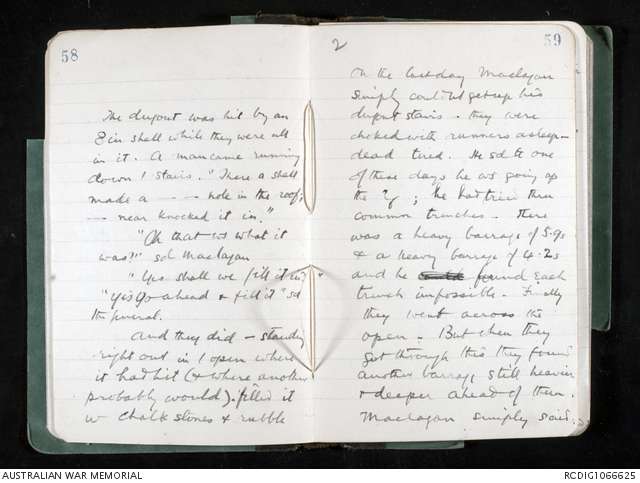 58
The dugout was hit by an
8 in shell while they were all
in it. A man came running
down / stairs. "There a shell
made a - - - hole in the roof;
- near knocked it in."
"Oh that ws what it
was?" sd Maclagan
"Yes shall we fill it in?"
"Yes go ahead & fill it" sd
the general.
And they did - standing
right out in / open where
it had hit (& where another
probably would). filled it
w chalk stones & rubble
2
59
On the last day Maclagan
simply couldn't get up his
dugout stairs. They were
choked with runners asleep -
dead tired. He sd to one
of these days he ws going up
the ; he had tried three
common trenches. There
was a heavy barrage of 5.9s
& a heavy barrage of 4.2s
and he found each
trench impossible. Finally
they went across the
open. But when they
got through this they found
another barrage still heavier
& deeper ahead of them.
Maclagan simply said:
AUSTRALIAN WAR MEMORIAL
RCDIG1066625